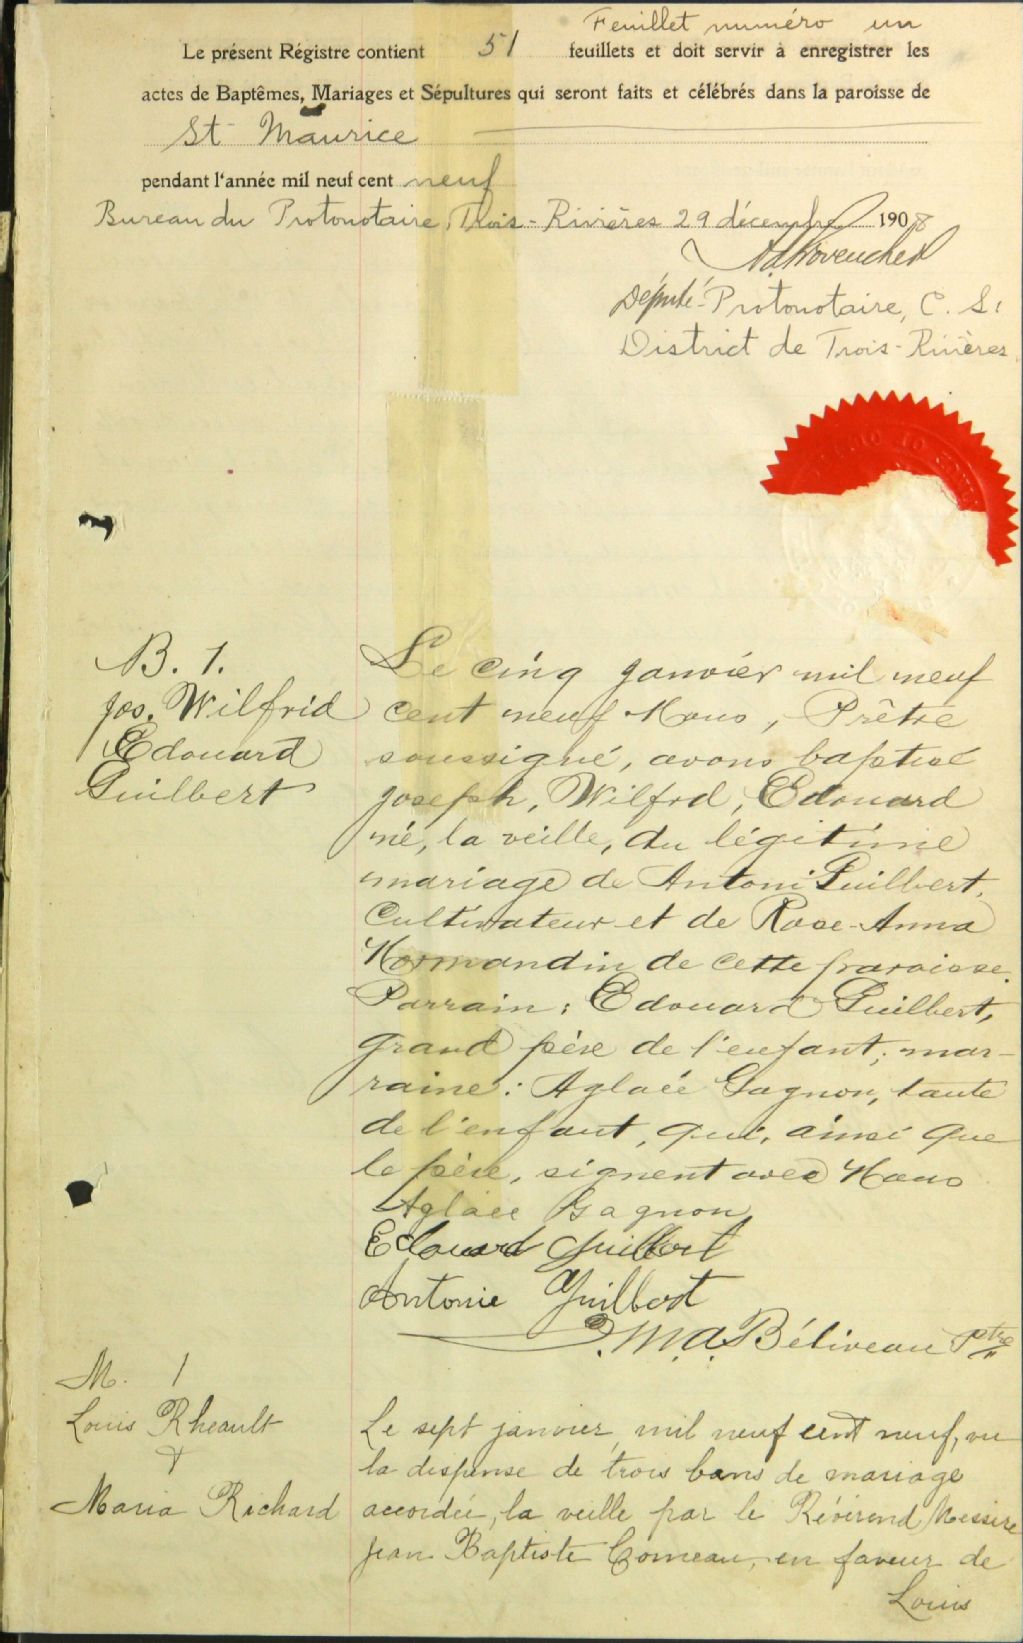 Feuillet numéro un
Le présent Régistre contient 51 feuillets et doit servir à enregistrer les
actes de Baptêmes, Mariages et Sépultures qui seront faits et célébrés dans la paroisse de
St Maurice
pendant l'année mil neuf cent neuf
Bureau du Protonotaire, Trois-Rivières 29 décembre 1908
Député-Protonotaire, C. S.
District de Trois-Rivières
B. 1.
Jos. Wilfrid
Edouard
Guilbert
Le cinq janvier mil neuf
cent neuf Nous, Prêtre
soussigné, avons baptisé
Joseph, Wilfrd, Edouard
né, la veille, du légitime
mariage de Antoni Guilbert,
Cultivateur et de Rose-Anna
Normandin de cette paroisse.
Parrain: Edouard Guilbert,
grand père de l'enfant; mar-
raine: Aglaée Gagnon, tante
de l'enfant, qui, ainsi que
le père, signent avec Nous
Aglaée Gagnon
Edouard Guilbert
Antonie Guilbert
D. M. A. Béliveau Ptre
M. 1
Louis Rheault
&
Maria Richard
Le sept janvier, mil neuf cent neuf, vu
la dispense de trois bans de mariage
accordée, la veille par le Révérend Messire
Jean Baptiste Comeau, en faveur de
Louis